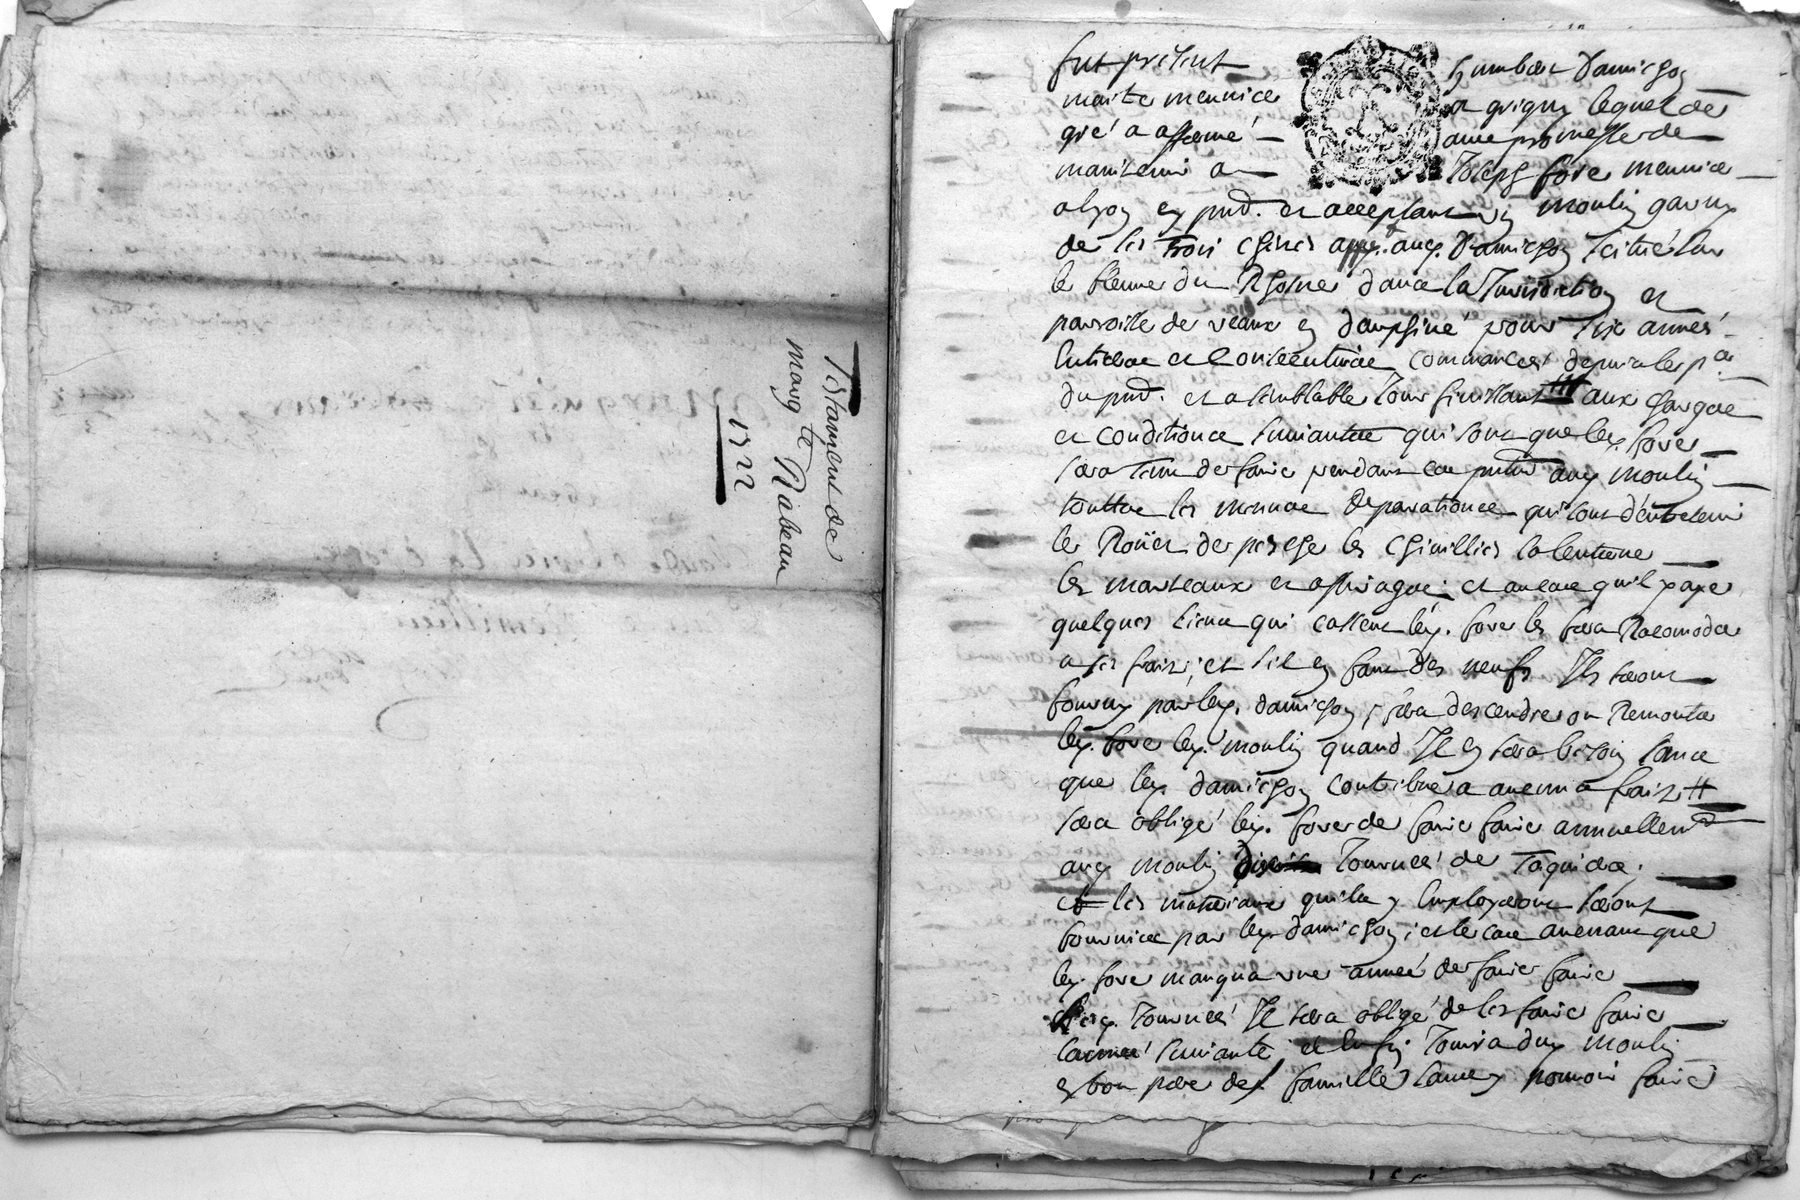 Testament de
marg te Nabeau
1722
fut présent humbert Damichon
maitre meunier a grigny lequel de
gré a affermé avec promesse de
maintenir a Joseph fore meunier
a lyon en pnt. et acceptant un moulin garny
de ses trois chines appt. aud. Damichon scitué sur
le fleuve du Rhosne dans la Jurisdiction et
parroisse de veaux en dauphiné pour six années
Entieres et Consecutives commancées depuis les
du pnt. et a semblable jour finissant aux charges
et conditions suivantes qui sont que led. fore
sera tenu de faire pendant ce aud. moulin
touttes les menues Reparations qui sont d'entretenir
le Roüet de les chevilles la lenterne
les marteaux et et au cas qu'il
quelques qui cassent led. fore les fera Racomoder
a ses frais; et s'il en faut des neufs Ils seront
fournys par led. damichon, fera descendre ou Remonter
led. fore led. moulin quand Il en sera besoin sans
que led. damichon contribue a aucuns frais #
sera obligé led. fore de faire faire annuellemt
aud moulin tournées de
et les materiaux qui s'y Employeront seront
fournies par led. damichon; et le cas avenant que
led. fore manqua une année de faire faire
tournées Il sera obligé de les faire faire
l'année suivante et Enfin Jouira dud. moulin
en bon pere de famille sans y pouvoir faire